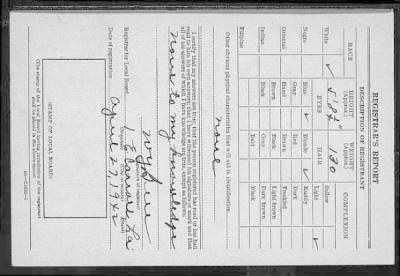 REGISTRAR'S REPORT
DESCRIPTION OF REGISTRANT
RACE
HEIGHT (Approx.)
WEIGHT (Approx.)
COMPLEXION
White ✓
5' 8½"
130
Sallow
EYES
HAIR
Light ✓
Negro
Blue ✓
Blonde ✓
Ruddy
Gray
Red
Dark
Oriental
Hazel
Brown
Freckled
Brown
Black
Light brown
Indian
Black
Gray
Dark brown
Bald
Black
Filipino
Other obvious physical characteristics that will aid in identification
none
I certify that my answers are true; that the person registered has read or has had read to him his own answers; that I have witnessed his signature or mark and that all of his answers of which I have knowledge are true, except as follows:
none to my knowledge
(Signature of registrar)
Registrar for Local Board
1
E. Carroll
La
(Number)
(City or county)
(State)
Date of registration
April 27, 1942
(STAMP OF LOCAL BOARD)
(The stamp of the Local Board having jurisdiction of the registrant shall be placed in the above space)